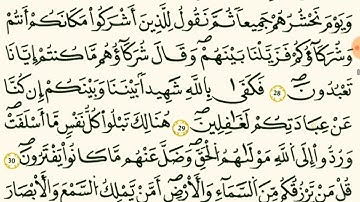 وَيَوْمَ نَحْشُرُهُمْ جَمِيعًا ثُمَّ نَقُولُ لِلَّذِينَ أَشْرَكُوا مَكَانَكُمْ أَنتُمْ
وَشُرَكَاؤُكُمْ فَزَيَّلْنَا بَيْنَهُمْ وَقَالَ شُرَكَاؤُهُم مَّا كُنتُمْ إِيَّانَا
تَعْبُدُونَ 28 فَكَفَىٰ بِاللَّهِ شَهِيدًا بَيْنَنَا وَبَيْنَكُمْ إِن كُنَّا
عَنْ عِبَادَتِكُمْ لَغَافِلِينَ 29 هُنَالِكَ تَبْلُوا كُلُّ نَفْسٍ مَّا أَسْلَفَتْ
وَرُدُّوا إِلَى اللَّهِ مَوْلَاهُمُ الْحَقِّ وَضَلَّ عَنْهُم مَّا كَانُوا يَفْتَرُونَ 30
قُلْ مَن يَرْزُقُكُم مِّنَ السَّمَاءِ وَالْأَرْضِ أَمَّن يَمْلِكُ السَّمْعَ وَالْأَبْصَارَ